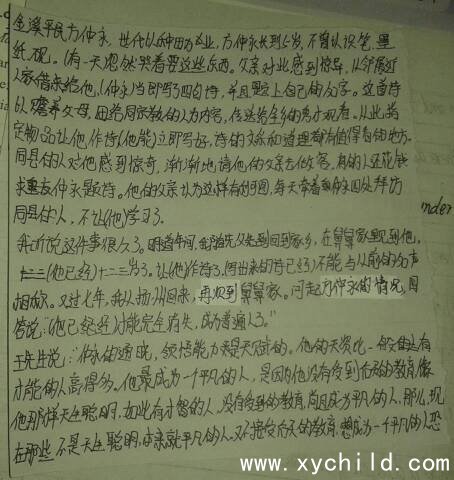 金溪平民方仲永,世代以种田为业,方仲永长到5岁,不曾认识笔、墨
纸、砚。有一天忽然哭着要这些东西。父亲对此感到惊异,从邻居
人家借来给他,仲永当即写了四句诗,并且题上自己的名字。这首诗
以赡养父母,团结同宗族的人为内容,传送给全乡的秀才观看。从此指
定物品让他作诗(他能)立即写好,诗的文采和道理都有值得看的地方。
同县的人对他感到惊奇,渐渐地请他的父亲去做客,有的人还花钱
求仲永题诗。他的父亲认为这样有利可图,每天牵着仲永四处拜访
同县的人,不让(他)学习了.
我听说这件事很久了。明道年间,我随先父回到家乡,在舅舅家里见到他,
(他已经)十二三岁了。让(他)作诗,(写出来的诗已经)不能与从前的名声
相称。又过七年,我从扬州回来,再次到舅舅家。问起方仲永的情况,回
答说:"(他)已经才能完全消失,成为普通人了。"
王先生说:仲永的通晓,领悟能力是天赋的。他的天资比一般的有
才能的人高得多。他最成为一个平凡的人,是因为他没有受到后天的教育。像
他那样天生聪明,如此有才智的人,没有受到的教育,尚且成为平凡的人,那么,现
在那些不是天生聪明,本来就平凡的人,又不接受后天的教育,想成为一个平凡的人恐
nder
www.xychild.com